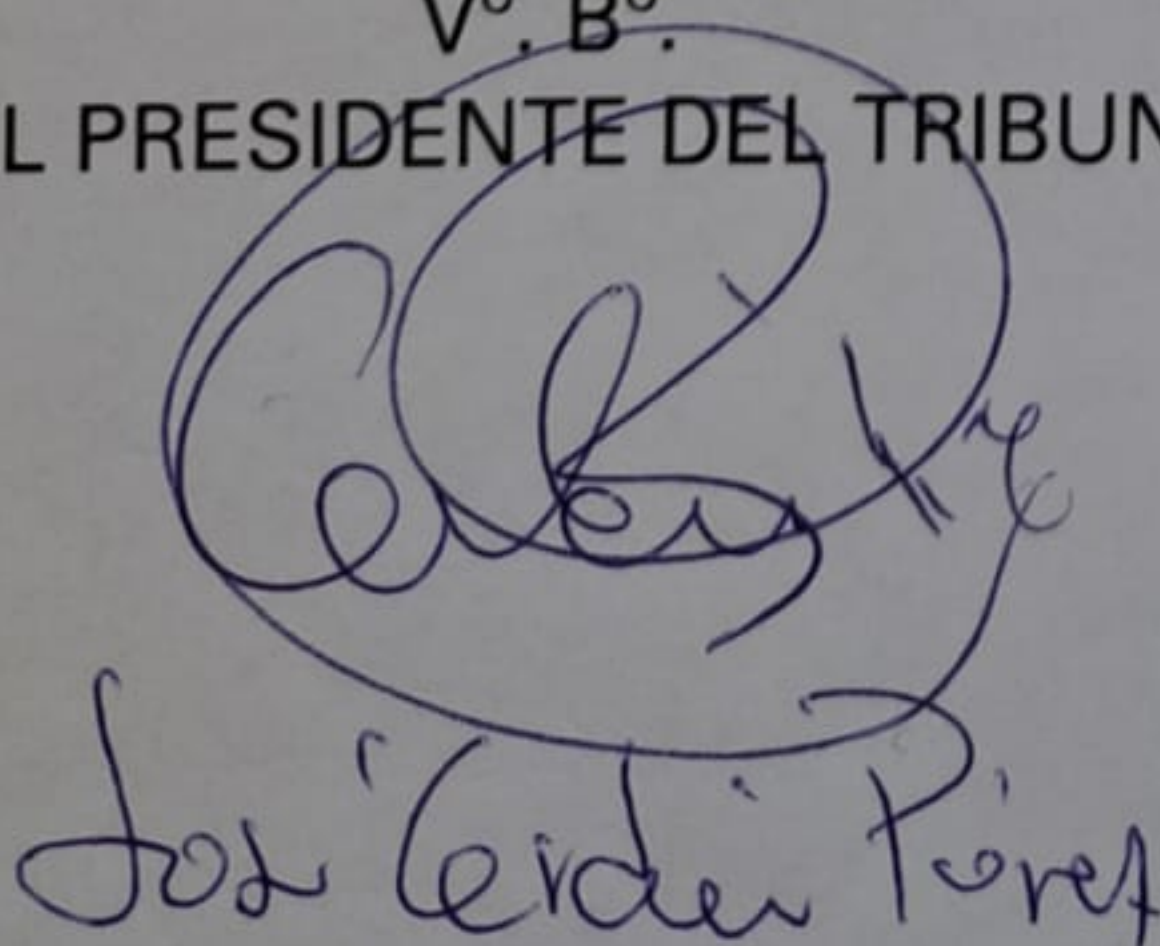 Vº. Bº.
L PRESIDENTE DEL TRIBUN
José Cerdán Pérez